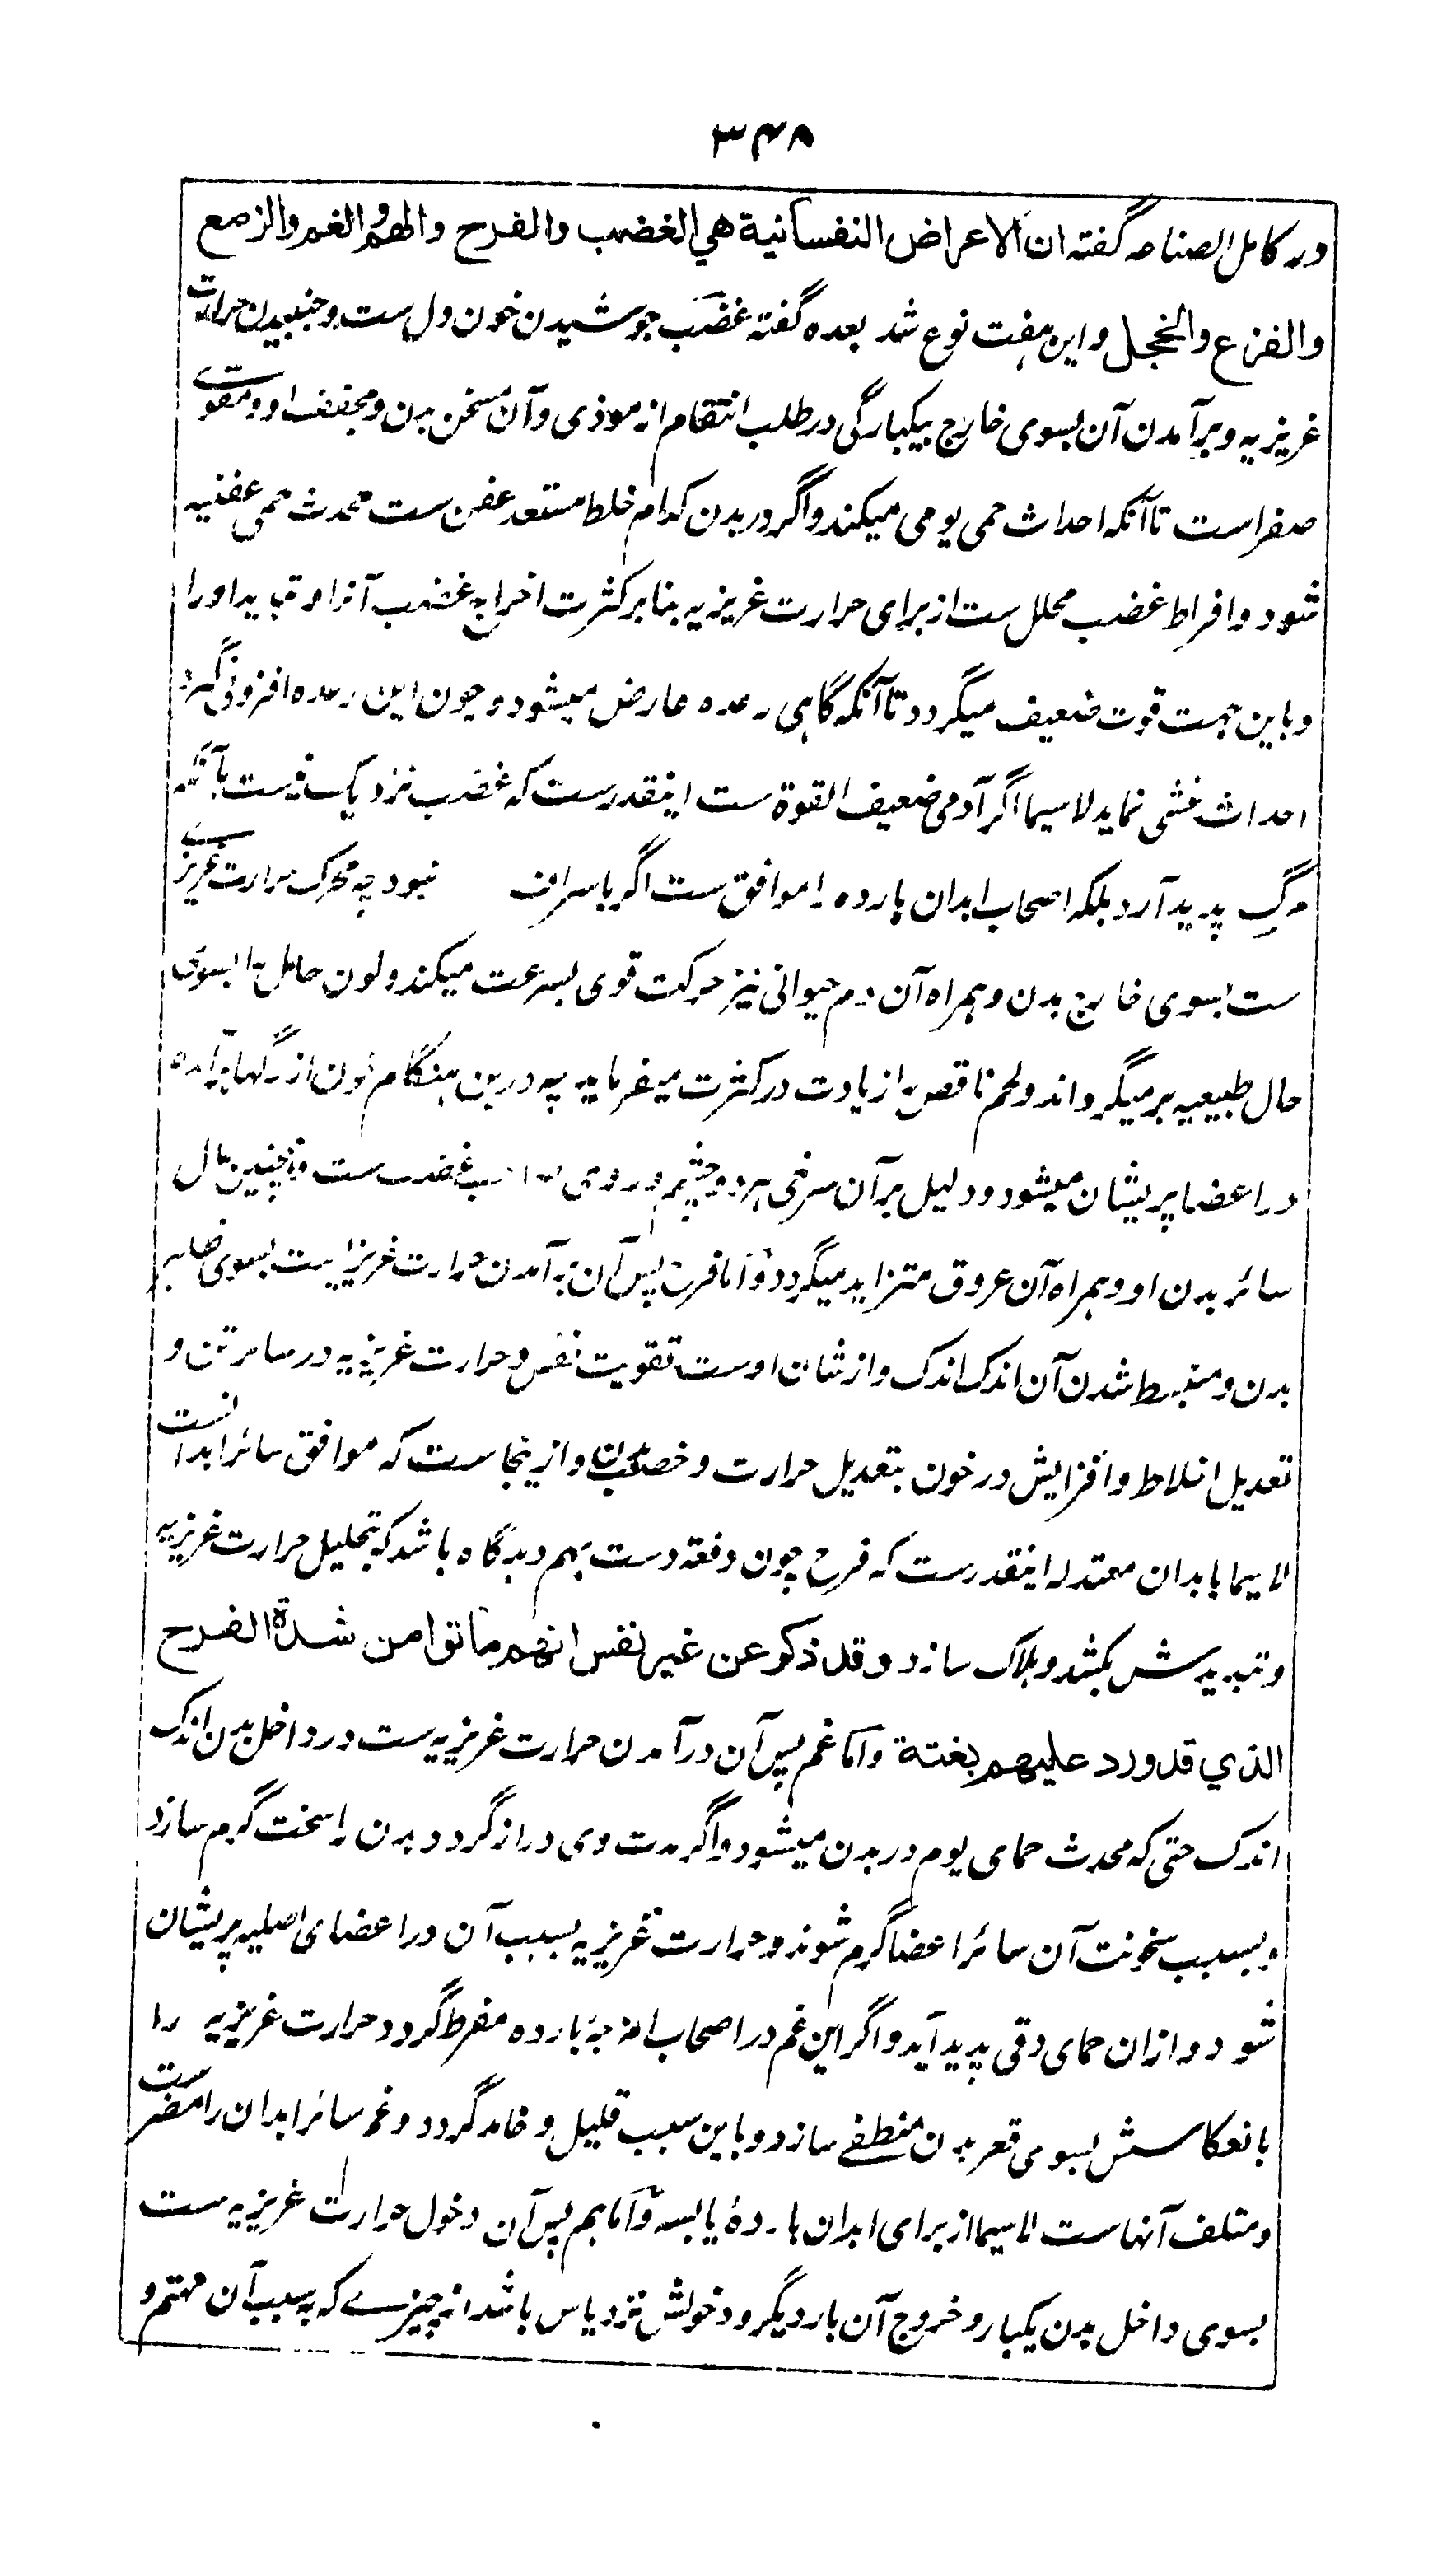 ۳۴۸
در کامل الصناعه گفته ان الاعراض النفسانیة هي الغضب والفرح والهم والغم والزمع
والفزع والخجل و این هفت نوع شد بعده گفته غضب جوشیدن خون دل ست و جنبیدن حرارت
غریزیه و برآمدن آن بسوی خارج بیکبارگی در طلب انتقام از موذی و آن مسخن بدن و مجفف او و مقوی
صفراست تا آنکه احداث حمی یومی میکند و اگر در بدن کدام خلط مستعد عفن ست محدث حمی عفنیه
شود و افراط غضب محلل ست از برای حرارت غریزیه بنابر کثرت اخراج غضب آنرا و تبدید او را
و باین جهت قوت ضعیف میگردد تا آنکه گاهی رعده عارض میشود و چون این رعده افزونی گیرد
احداث غشی نماید لاسیما اگر آدمی ضعیف القوة ست اینقدرست که غضب نزدیک نیست بآنکه
مرگ پدید آرد بلکه اصحاب ابدان بارده را موافق ست اگر باسراف نبود چه محرک حرارت غریزیه
ست بسوی خارج بدن و همراه آن دم حیوانی نیز حرکت قوی بسرعت میکند و لون حامل را بسوی
حال طبیعیه برمیگرداند و لحم ناقص را زیادت در کثرت میفرماید چه درین هنگام خون از رگها برآمده
در اعضا پریشان میشود و دلیل بر آن سرخی هر دو چشم و روی صاحب غضب ست و همچنین حال
سائر بدن او و همراه آن عروق متزاید میگردد و اما فرح پس آن برآمدن حرارت غریزیست بسوی ظاهر
بدن و منبسط شدن آن اندک اندک و از شان اوست تقویت نفس و حرارت غریزیه در سائر تن و
تعدیل اخلاط و افزایش در خون بتعدیل حرارت و خصب بدن و ازینجاست که موافق سائر ابدانست
لاسیما بابدان معتدله اینقدرست که فرح چون دفعة دست بهم دهد گاه باشد که بتحلیل حرارت غریزیه
و تبدیدش بکشد و هلاک سازد وقد ذکر عن غیر نفس انهم ماتوا من شدة الفرح
الذي قد ورد علیهم بغتة و اما غم پس آن درآمدن حرارت غریزیه ست در داخل بدن اندک
اندک حتی که محدث حمای یوم در بدن میشود و اگر مدت وی دراز گردد بدن را سخت گرم سازد
و بسبب سخونت آن سائر اعضا گرم شوند و حرارت غریزیه بسبب آن در اعضای اصلیه پریشان
شود و ازان حمای دقی پدید آید و اگر این غم در اصحاب امزجهٔ بارده مفرط گردد حرارت غریزیه را
بانعکاسش بسوی قعر بدن منطفی سازد و باین سبب قلیل و خامد گردد و غم سائر ابدان را مضرست
و متلف آنهاست لاسیما از برای ابدان باردهٔ یابسه و اما هم پس آن دخول حرارت غریزیه ست
بسوی داخل بدن یکبار و خروج آن بار دیگر و دخولش نزد یاس باشد از چیزے که بسبب آن مهتم و